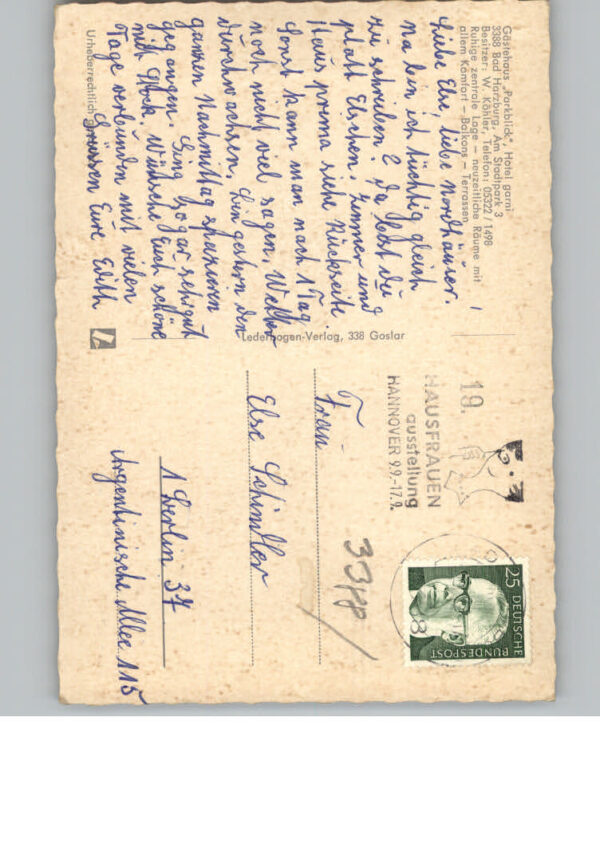 Gästehaus „Parkblick", Hotel garni
3388 Bad Harzburg, Am Stadtpark 3
Besitzer: W. Köhler, Telefon: 05322 / 1498
Ruhige zentrale Lage – neuzeitliche Räume mit
allem Komfort – Balkons – Terrassen
Liebe Else, liebe
na bin ich tüchtig gleich
zu schreiben? Da hast du
platt Elschen. Zimmer und
Haus prima siehe Rückseite
Sonst kann man nach 1 Tag
noch nicht viel sagen. Wetter
durchwachsen. Bin gestern den
ganzen Nachmittag spazieren
gegangen. Ging sogar sehr gut
mit Stock. Wünsche Euch schöne
Tage verbunden mit vielen
Grüssen Eure Edith
Urheberrechtlich
Lederbogen-Verlag, 338 Goslar
19.
HAUSFRAUEN
ausstellung
HANNOVER 9.9.-17.9.
25 DEUTSCHE
BUNDESPOST
33 PP
Frau
Else Schindler
1 Berlin 37
Argentinische Allee 115